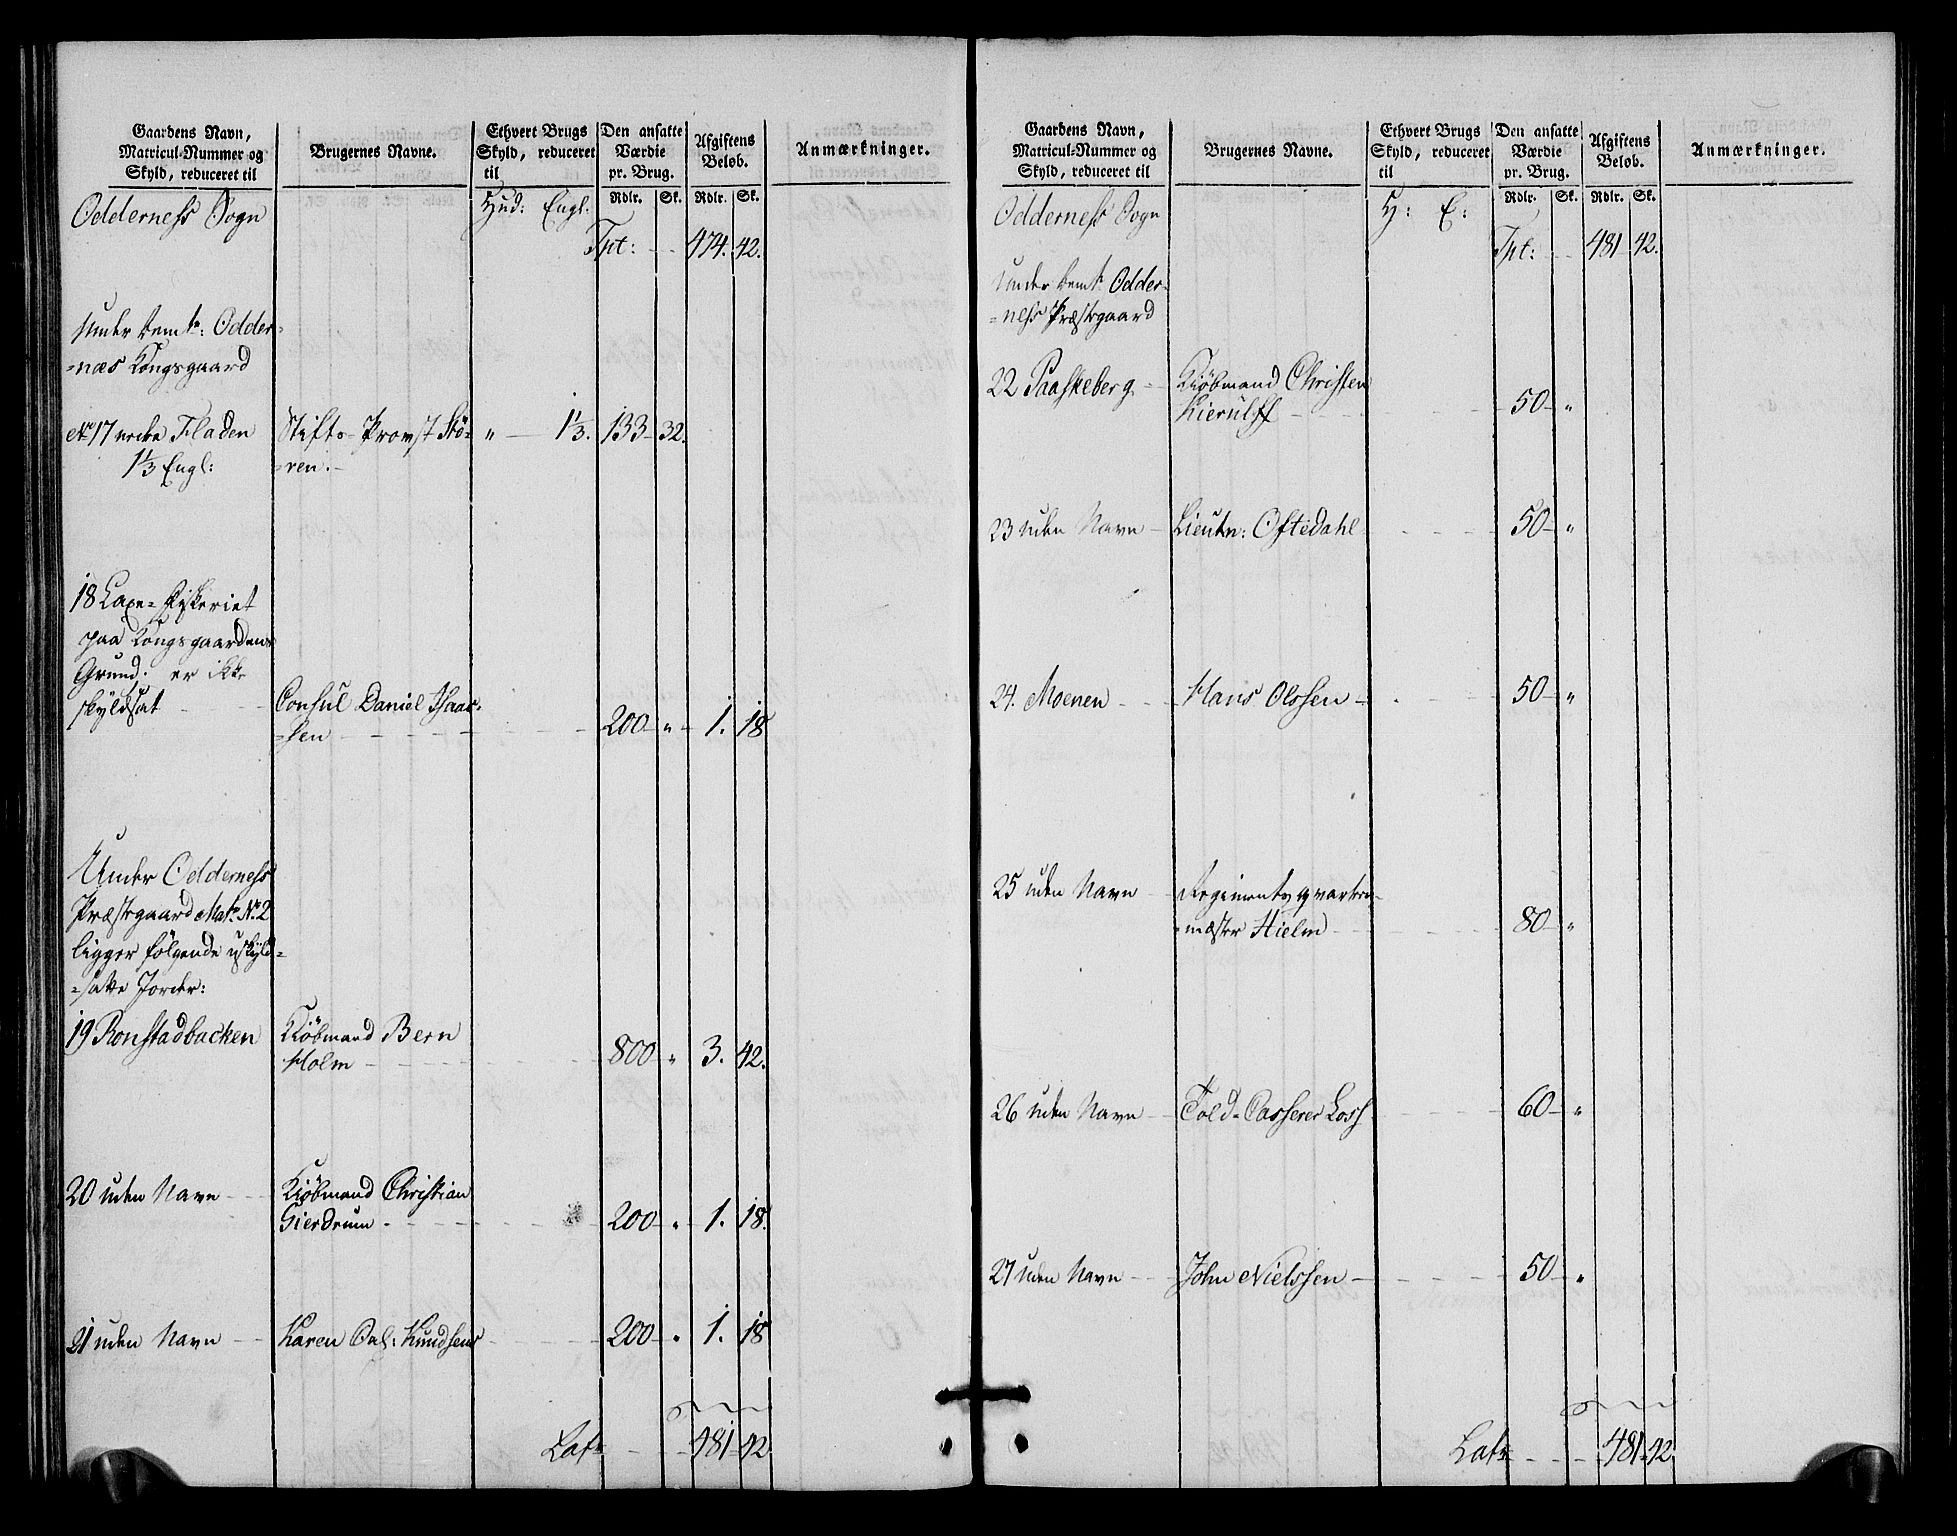 Gaardens Navn,
Matricul-Nummer og
Skyld, reduceret til
Brugernes Navne.
Ethvert Brugs
Skyld, reduceret
til
Den ansatte
Værdie
pr. Brug.
Afgiftens
Beløb.
Anmærkninger.
Rdlr. Sk. Rdlr. Sk.
Odderness Sogn Hud: Engl.
Tpt: 474. 42.
Under bemte: Odder-
-næs Kongsgaard
No 17 Fladen Stifts Provst Stö- „ 1⅓. 133 32.
1⅓ Engl: -ren.
18 Laxe-Fiskeriet
paa Kongsgaardens
Grund. er ikke
skyldsat Consul Daniel Isaac-
-sen 200 „ 1. 18
Under Odderness
Præstegaard Matr. No. 2
ligger følgende uskyld-
-satte Jorder:
19 Ronstadbacken Kiöbmand Bern
Holm 800 „ 3. 42.
20 uden Navn Kiöbmand Christian
Gierdrum 200 „ 1. 18.
21 uden Navn Karen Sal: Knudsens 200 „ 1. 18
Lats 481 42
Gaardens Navn,
Matricul-Nummer og
Skyld, reduceret til
Brugernes Navne.
Ethvert Brugs
Skyld, reduceret
til
Den ansatte
Værdie
pr. Brug.
Afgiftens
Beløb.
Anmærkninger.
Rdlr. Sk. Rdlr. Sk.
Odderness Sogn H: E:
Tpt: 481 42.
Under bemte Odder-
-ness Præstegaard
22 Paaskeberg Kiöbmand Christen
Kierulff 50 „
23 uden Navn Lieutn: Oftedahl 50 „
24. Moenen Hans Olssen 50 „
25 uden Navn Regimentsqvarteer-
-mester Hielm 80 „
26 uden Navn Told-Casserer Loss 60 „
27 uden Navn John Nielssen 50 „
Lats 481 42.